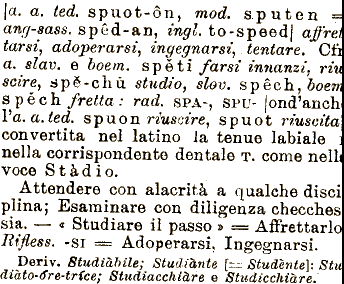 |a. a. ted. spuot-ôn, mod. sputen =
ang-sass. spêd-an, ingl. to-speed| affret
tarsi, adoperarsi, ingegnarsi, tentare. Cfr
a. slav. e boem. spěti farsi innanzi, riu
scire, spě-chŭ studio, slov. spêch, boem
spěch fretta: rad. SPA-, SPU- |ond'anch
l'a. a. ted. spuon riuscire, spuot riuscita
convertita nel latino la tenue labiale
nella corrispondente dentale T. come nell
voce Stàdio.
Attendere con alacrità a qualche disci
plina; Esaminare con diligenza checches
sia. — « Studiare il passo » = Affrettarlo
Rifless. -SI = Adoperarsi, Ingegnarsi.
Deriv. Studiàbile; Studiànte [= Studènte]: Stu
diàto-óre-tríce; Studiacchiàre e Studicchiàre.